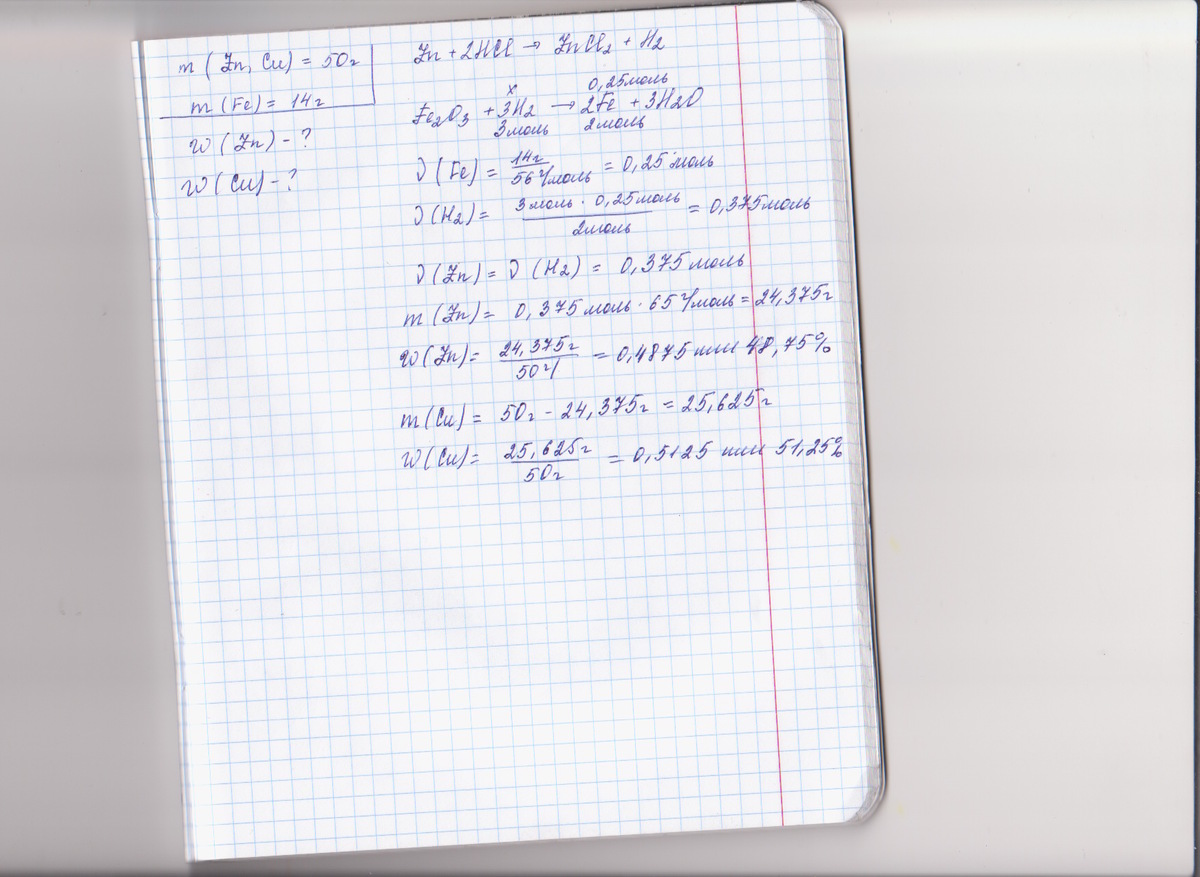 m (Zn, Cu) = 50г
m (Fe) = 14г
w (Zn) - ?
w (Cu) - ?
Zn + 2HCl → ZnCl2 + H2
x 0,25моль
Fe2O3 + 3H2 → 2Fe + 3H2O
3моль 2моль
ν (Fe) = 14г / 56 г/моль = 0,25 моль
ν (H2) = 3моль · 0,25моль / 2моль = 0,375моль
ν (Zn) = ν (H2) = 0,375 моль
m (Zn) = 0,375 моль · 65 г/моль = 24,375г
w (Zn) = 24,375г / 50г = 0,4875 или 48,75%
m (Cu) = 50г - 24,375г = 25,625г
w (Cu) = 25,625г / 50г = 0,5125 или 51,25%